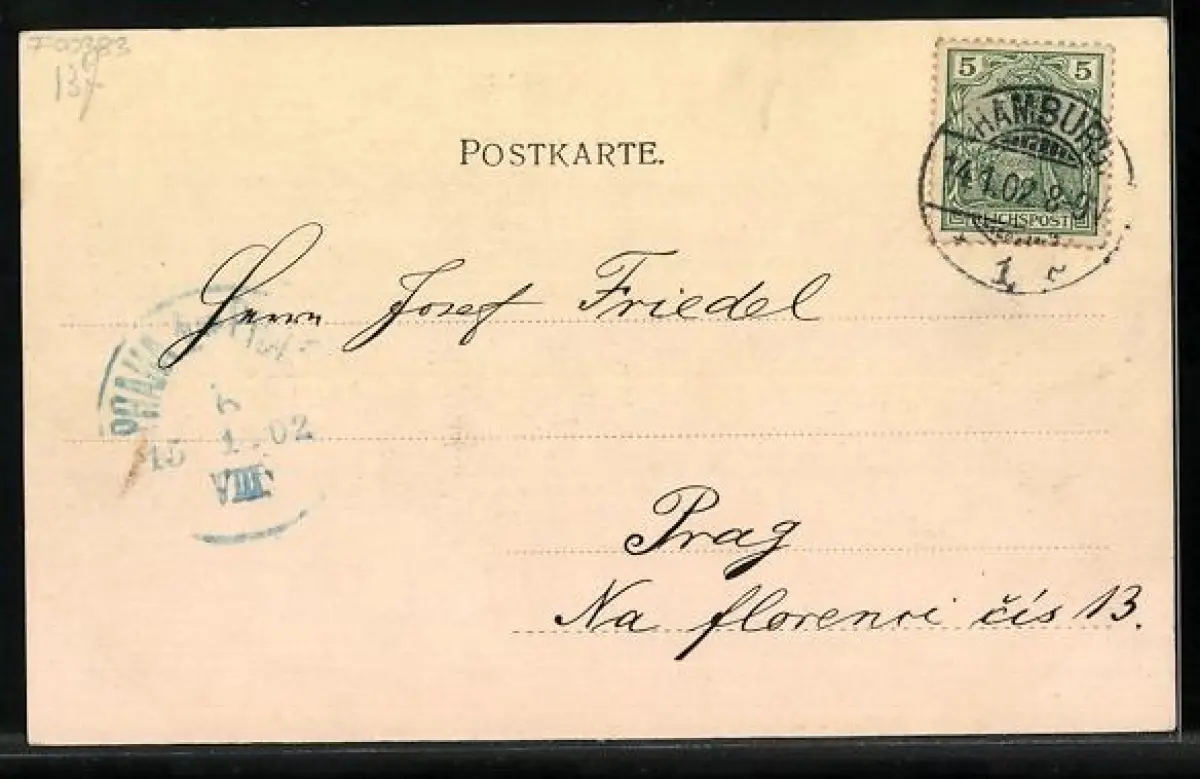 137
POSTKARTE.
5 5
HAMBURG
14.1.02 8-9V
REICHSPOST
1. r
Herrn Josef Friedel
PRAHA
15 1 02
VIII A
Prag
Na florenci čís 13.